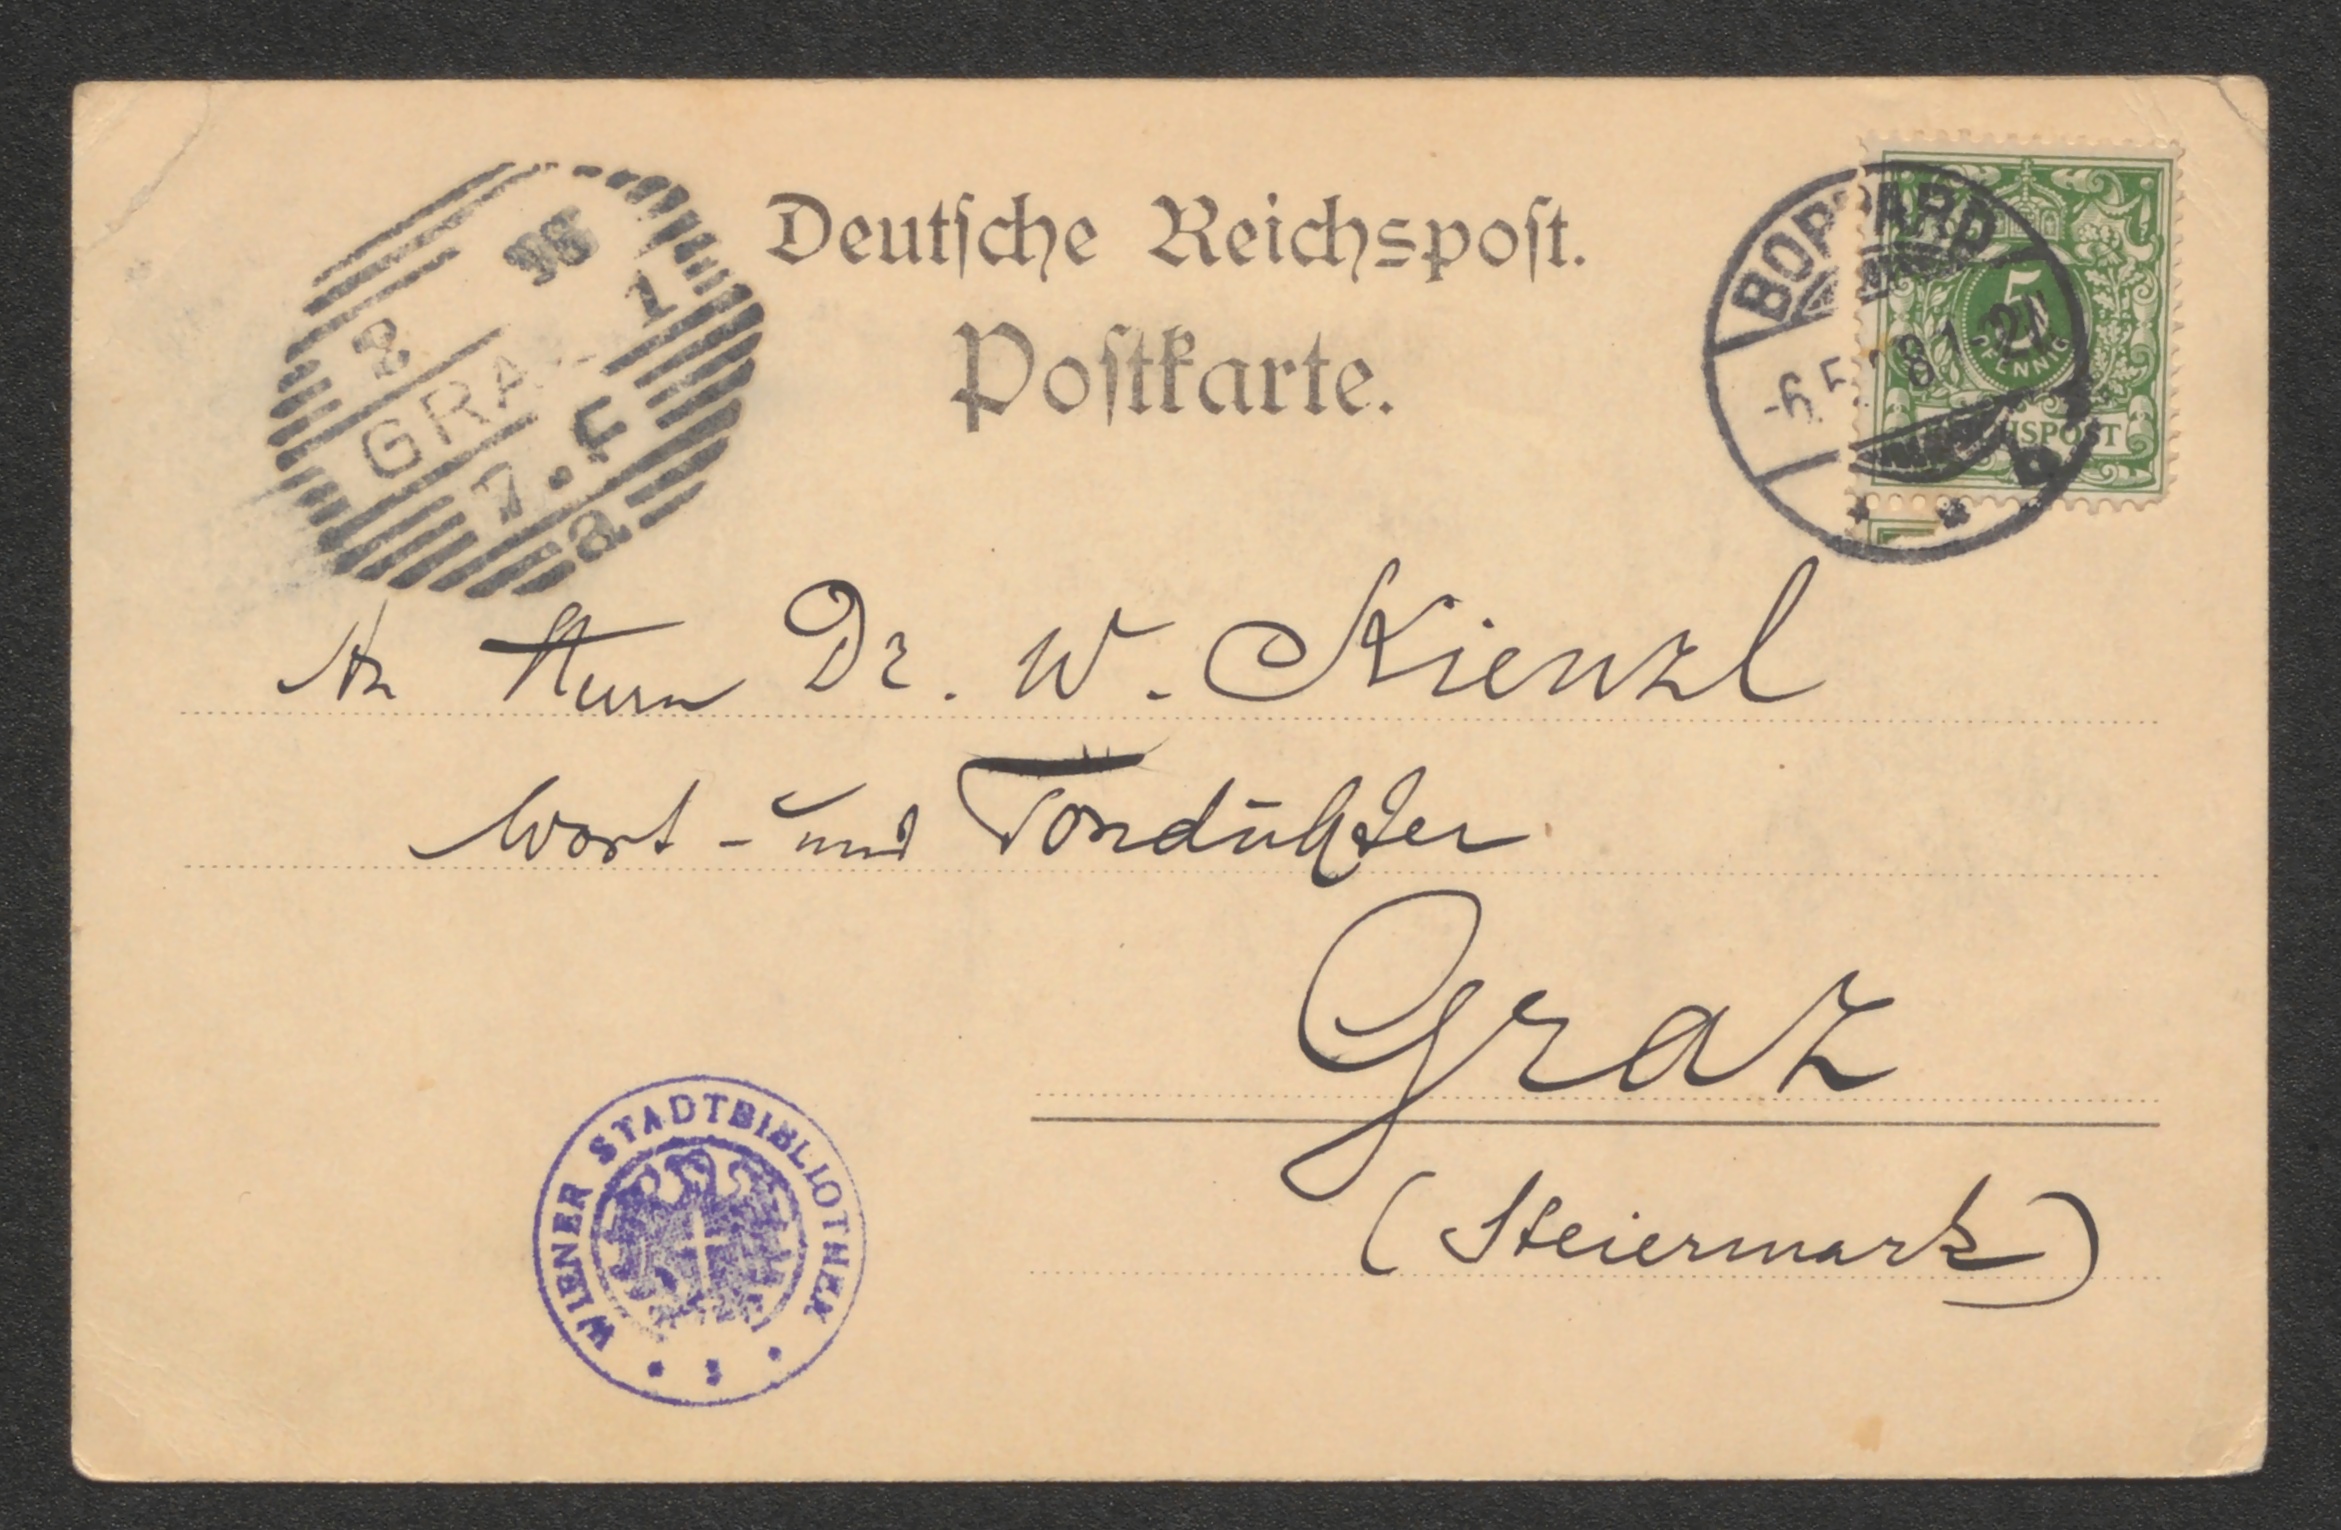 Deutsche Reichspost.
Postkarte.
BOPPARD
5
PFENNIG
REICHSPOST
GRA
7.
a
An Herrn Dr. W. Kienzl
Wort- und Tondichter
Graz
(Steiermark)
WIENER STADTBIBLIOTHEK